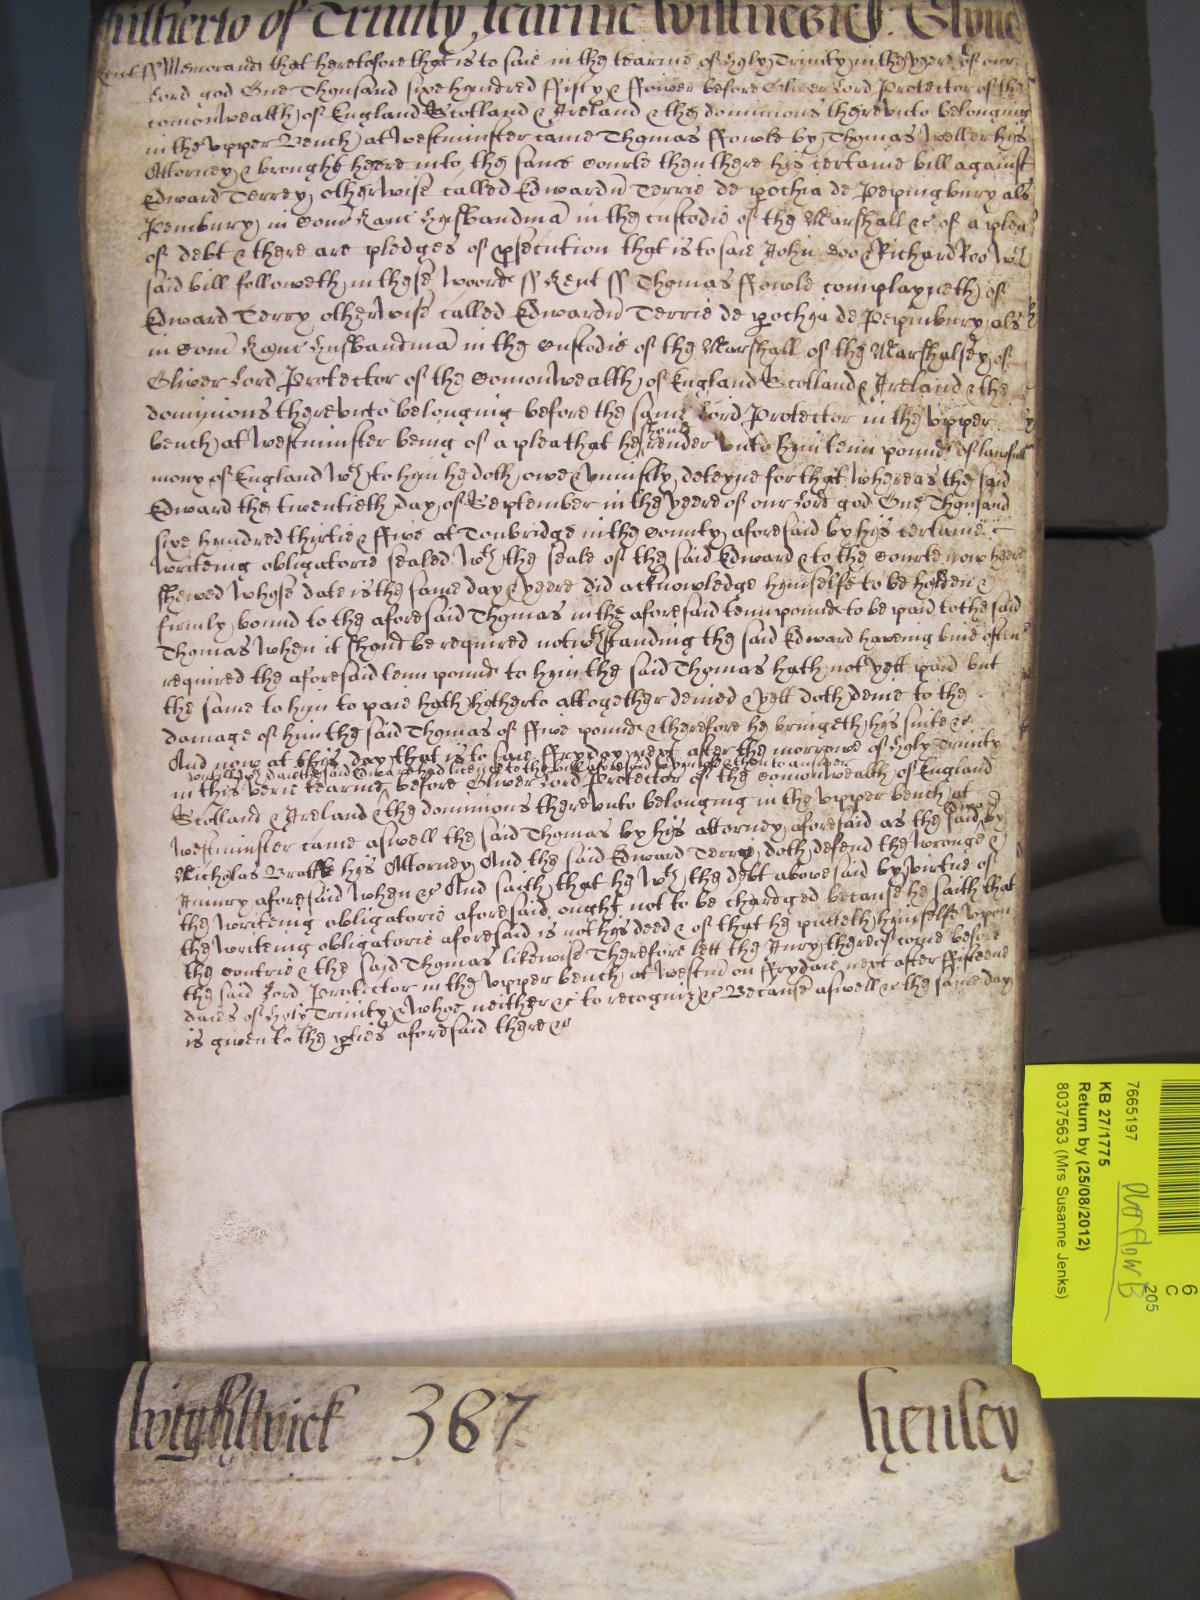 hitherto of Trinity tearme Wittnesse J: Glyne
Kent ss Memorand that heretofore that is to saie in the tearme of holy Trinity in the yeere of our
Lord god One Thousand sixe hundred fifty & ffower before Oliver Lord Protector of the
comonwealth of England Scotland & Ireland & the dominions thereunto belonging
in the upper Bench at Westminster came Thomas ffowle by Thomas Weller his
Attorney & brought heere into the same Courte then there his certaine bill against
Edward Terrey otherwise called Edwardu Terrie de pochia de Pepingbury als
Pembury in Com Kanc husbandma in the custodie of the Marshall &c of a plea
of debt & there are pledges of psecution that is to saie John Doo & Richard Roo wch
said bill followeth in these woords ss Kent ss Thomas ffowle complayneth of
Edward Terry otherwise called Edwardu Terrie de pochia de Pepinbury als
in Com Kanc husbandma in the Custodie of the Marshall of the Marshalsey of
Oliver Lord Protector of the Comonwealth of England Scotland & Ireland & the
dominions thereunto belonging before the same Lord Protector in the upper
bench at Westminster being of a plea that he should render unto hym tenn pounds of lawfull
mony of England wch to hym he doth owe & uniustly deteyne for that whereas the said
Edward the twentieth day of September in the yeere of our Lord god One Thousand
sixe hundred thirtie & ffive at Tonbridge in the County aforesaid by his certaine
writeing obligatorie sealed wth the seale of the said Edward & to the Courte now heere
shewed whose date is the same day & yeere did acknowledge hymselfe to be holden &
firmly bound to the aforesaid Thomas in the aforesaid tenn pounds to be paid to the said
Thomas when it should be required notwthstanding the said Edward haveing bine often
required the aforesaid tenn pounds to hym the said Thomas hath not yett paid but
the same to hym to paie hath hitherto altogether denied & yett doth denie to the
damage of him the said Thomas of ffive pounds & therefore he bringeth his suite &c
And now at this day that is to saie ffryday next after the morrowe of holy Trinity
untill wch day the said Edward had licence to the bill aforesaid to imparle & then to answer
in this verie tearme before Oliver Lord Protector of the Comonwealth of England
Scotland & Ireland & the dominions thereunto belonging in the upper bench at
Westminster came aswell the said Thomas by his attorney aforesaid as the said Edward by
Nicholas his Attorney And the said Edward Terry doth defend the wronge &
Iniury aforesaid when &c And saith that he wth the debt abovesaid by virtue of
the writeing obligatorie aforesaid ought not to be chardged because he saith that
the writeing obligatorie aforesaid is not his deed & of that he putteth himselfe upon
the Contrie & the said Thomas likewise Therefore lett the Jury thereof come before
the said Lord Protector in the upper bench at Westm on ffrydaie next after fifteene
daies of holy Trinity & whoe neither &c to recognize &c Because aswell &c the same day
is given to the pties aforesaid there &c
wightwick 387 henley
6
C
205
Overflow B
7665197
KB 27/1775
Return by (25/08/2012)
8037563 (Mrs Susanne Jenks)